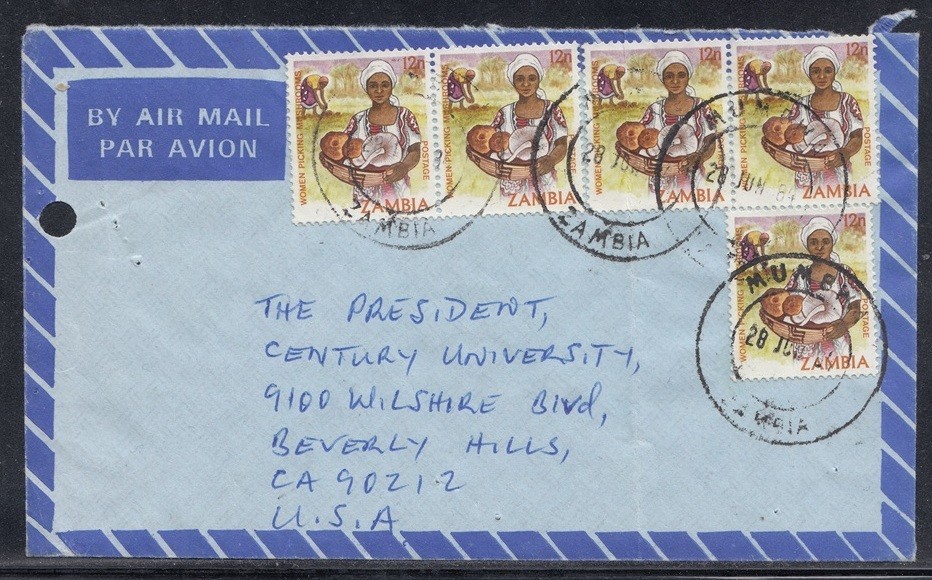 BY AIR MAIL
PAR AVION
12n
WOMEN PICKING MUSHROOMS
POSTAGE
ZAMBIA
12n
WOMEN PICKING MUSHROOMS
POSTAGE
ZAMBIA
12n
WOMEN PICKING MUSHROOMS
POSTAGE
ZAMBIA
12n
WOMEN PICKING MUSHROOMS
POSTAGE
ZAMBIA
12n
WOMEN PICKING MUSHROOMS
POSTAGE
ZAMBIA
ZAMBIA
28 JUN
ZAMBIA
28 JUN 84
28 JUN
ZAMBIA
THE PRESIDENT,
CENTURY UNIVERSITY,
9100 WILSHIRE Blvd,
BEVERLY HILLS,
CA 90212
U.S.A